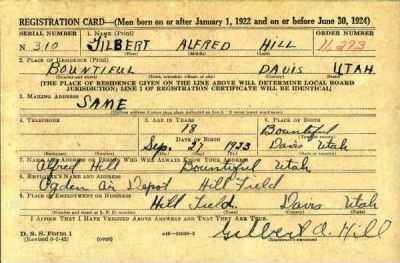 REGISTRATION CARD—(Men born on or after January 1, 1922 and on or before June 30, 1924)
SERIAL NUMBER 1. NAME (Print) ORDER NUMBER
N 310 GILBERT ALFRED HILL 11,273
2. PLACE OF RESIDENCE (Print)
BOUNTIFUL DAVIS UTAH
(Town, township, village, or city) (County) (State)
[THE PLACE OF RESIDENCE GIVEN ON THE LINE ABOVE WILL DETERMINE LOCAL BOARD
JURISDICTION; LINE 2 OF REGISTRATION CERTIFICATE WILL BE IDENTICAL]
3. MAILING ADDRESS
SAME
4. TELEPHONE 5. AGE IN YEARS 6. PLACE OF BIRTH
18 Bountiful
DATE OF BIRTH
Sep. 27 1923 Davis Utah
7. NAME AND ADDRESS OF PERSON WHO WILL ALWAYS KNOW YOUR ADDRESS
Alfred Hill Bountiful Utah
8. EMPLOYER'S NAME AND ADDRESS
Ogden Air Depot Hill Field
9. PLACE OF EMPLOYMENT OR BUSINESS
Hill Field Davis Utah
(Number and street or R. F. D. number) (Town) (County) (State)
I AFFIRM THAT I HAVE VERIFIED ABOVE ANSWERS AND THAT THEY ARE TRUE.
D. S. S. Form 1
(Revised 6-1-42) (over) Gilbert A. Hill
(Registrant's signature)